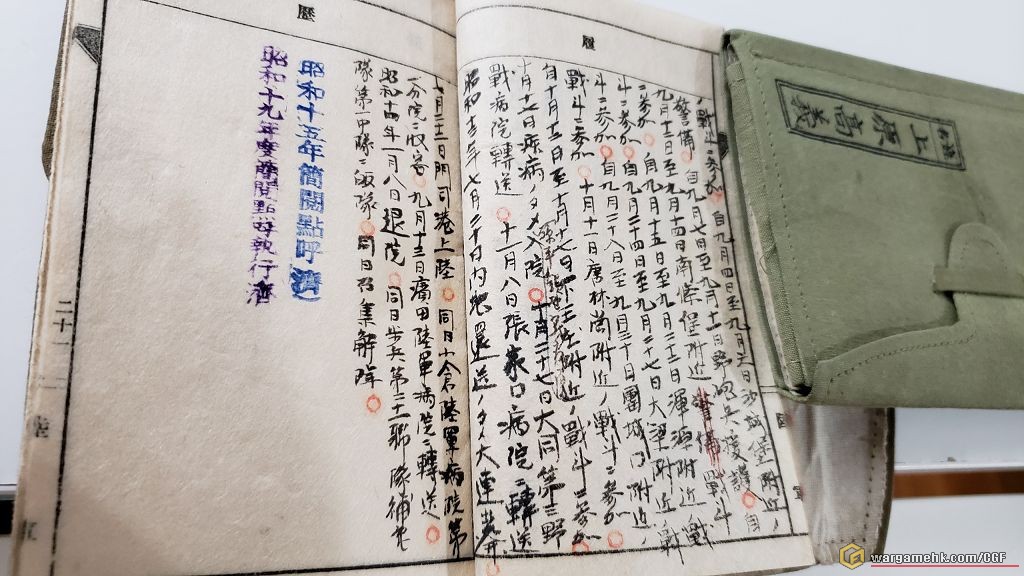 履
ノ戰斗ニ参加 自九月四日至九月六日沙城堡附近ノ
警備 自九月七日至九月十二日野砲兵援護 自
九月十三日至九月十四日南 附近ノ警備戰斗
ニ参加 自九月十五日至九月二十三日渾源附近ノ戰
斗ニ参加 自九月二十四日至九月二十七日大梁附近ノ戰
斗ニ参加 自九月二十八日至九月三十日團城口附近ノ
戰斗ニ参加 十月十一日唐林崗附近ノ戰斗ニ参加
自十月十五日至十月十七日 附近ノ戰斗ニ参加
十月十七日痳病ノタメ入院 十月二十七日大同第三野
戰病院轉送 十一月八日張家口病院ニ轉送
昭和 年七月二十日内地還送ノタメ大連港
歷
七月二十三日門司港上陸 同日小倉陸軍病院第
一分院ニ收容 九月十三日廣田陸軍病院ニ轉送
昭和十四年一月八日退院 同日步兵第二十一聯隊補充
隊第一中隊ニ皈隊 同日召集解除
昭和十五年簡閲點呼濟
昭和十九年度簡閲點呼執行濟
二十二
陸
軍
上原高義
wargamehk.com/CGF